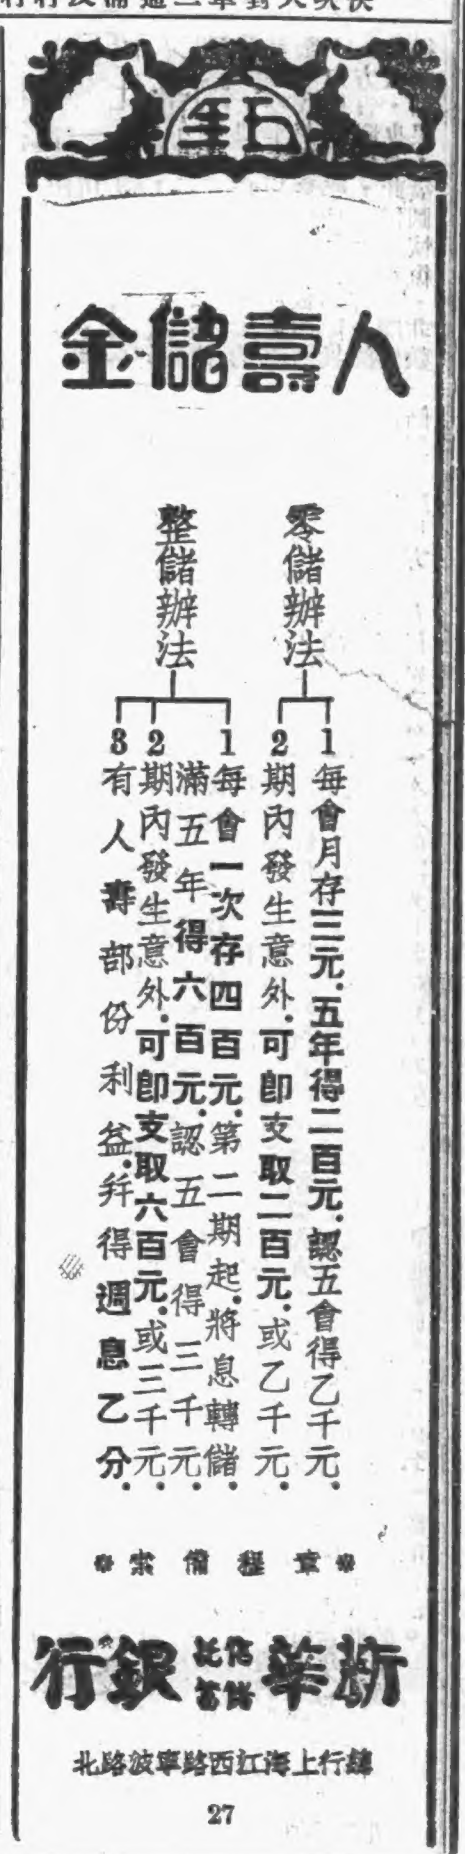 人壽儲金
零儲辦法
1 每會月存三元.五年得二百元.認五會得乙千元.
2 期內發生意外.可卽支取二百元.或乙千元.
整儲辦法
1 每會一次存四百元.第二期起.將息轉儲.
滿五年得六百元.認五會得三千元.
2 期內發生意外.可卽支取六百元.或三千元.
3 有人壽部份利益.幷得週息乙分.
章程備索
新華信託儲蓄銀行
總行上海江西路寧波路北
27